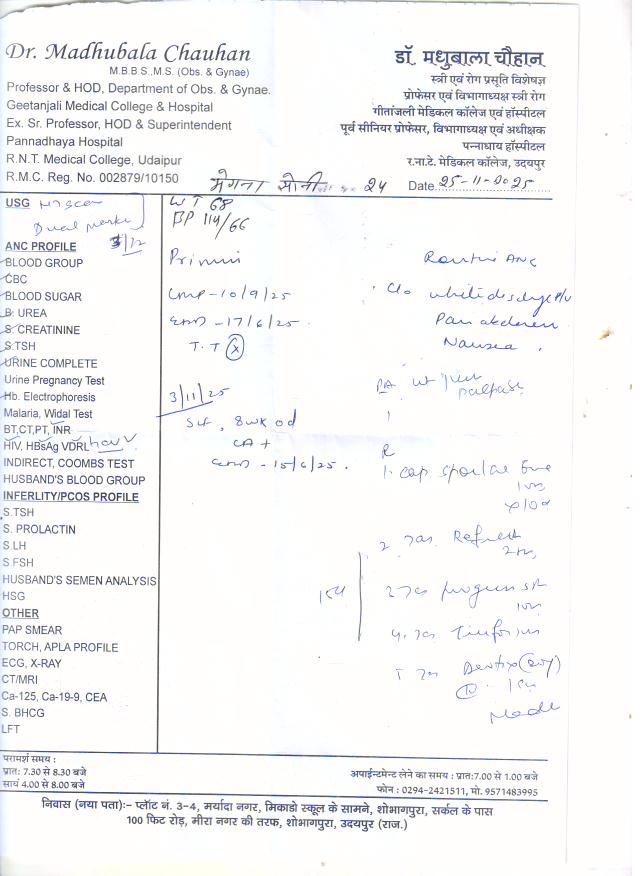 Dr. Madhubala Chauhan
M.B.B.S.,M.S. (Obs. & Gynae)
Professor & HOD, Department of Obs. & Gynae.
Geetanjali Medical College & Hospital
Ex. Sr. Professor, HOD & Superintendent
Pannadhaya Hospital
R.N.T. Medical College, Udaipur
R.M.C. Reg. No. 002879/10150
डॉ. मधुबाला चौहान
स्त्री एवं रोग प्रसूति विशेषज्ञ
प्रोफेसर एवं विभागाध्यक्ष स्त्री रोग
गीतांजली मेडिकल कॉलेज एवं हॉस्पीटल
पूर्व सीनियर प्रोफेसर, विभागाध्यक्ष एवं अधीक्षक
पन्नाधाय हॉस्पीटल
र.ना.टे. मेडिकल कॉलेज, उदयपुर
सोनी 24 Date 25-11-2025
USG
Dual
3/12
WT 68
BP 114/66
ANC PROFILE
BLOOD GROUP
CBC
BLOOD SUGAR
B. UREA
S. CREATININE
S.TSH
URINE COMPLETE
Urine Pregnancy Test
Hb. Electrophoresis
Malaria, Widal Test
BT,CT,PT, INR
HIV, HBsAg VDRL HCV
INDIRECT, COOMBS TEST
HUSBAND'S BLOOD GROUP
INFERLITY/PCOS PROFILE
S.TSH
S. PROLACTIN
S.LH
S.FSH
HUSBAND'S SEMEN ANALYSIS
HSG
OTHER
PAP SMEAR
TORCH, APLA PROFILE
ECG, X-RAY
CT/MRI
Ca-125, Ca-19-9, CEA
S. BHCG
LFT
Primi
LMP - 10/9/25
EDD - 17/6/25.
T.T (X)
3/11/25
SLF, 8wk od
CA +
EDD - 15/6/25.
Routine ANC
C/o white discharge P/V
Pain abdomen
Nausea
PA
R
1. cap
x 10d
2.
4.
परामर्श समय :
प्रातः 7.30 से 8.30 बजे
सायं 4.00 से 8.00 बजे
अपाईन्टमेन्ट लेने का समय : प्रातः7.00 से 1.00 बजे
फोन : 0294-2421511, मो. 9571483995
निवास (नया पता):- प्लॉट नं. 3-4, मर्यादा नगर, मिकाडो स्कूल के सामने, शोभागपुरा, सर्कल के पास
100 फिट रोड़, मीरा नगर की तरफ, शोभागपुरा, उदयपुर (राज.)